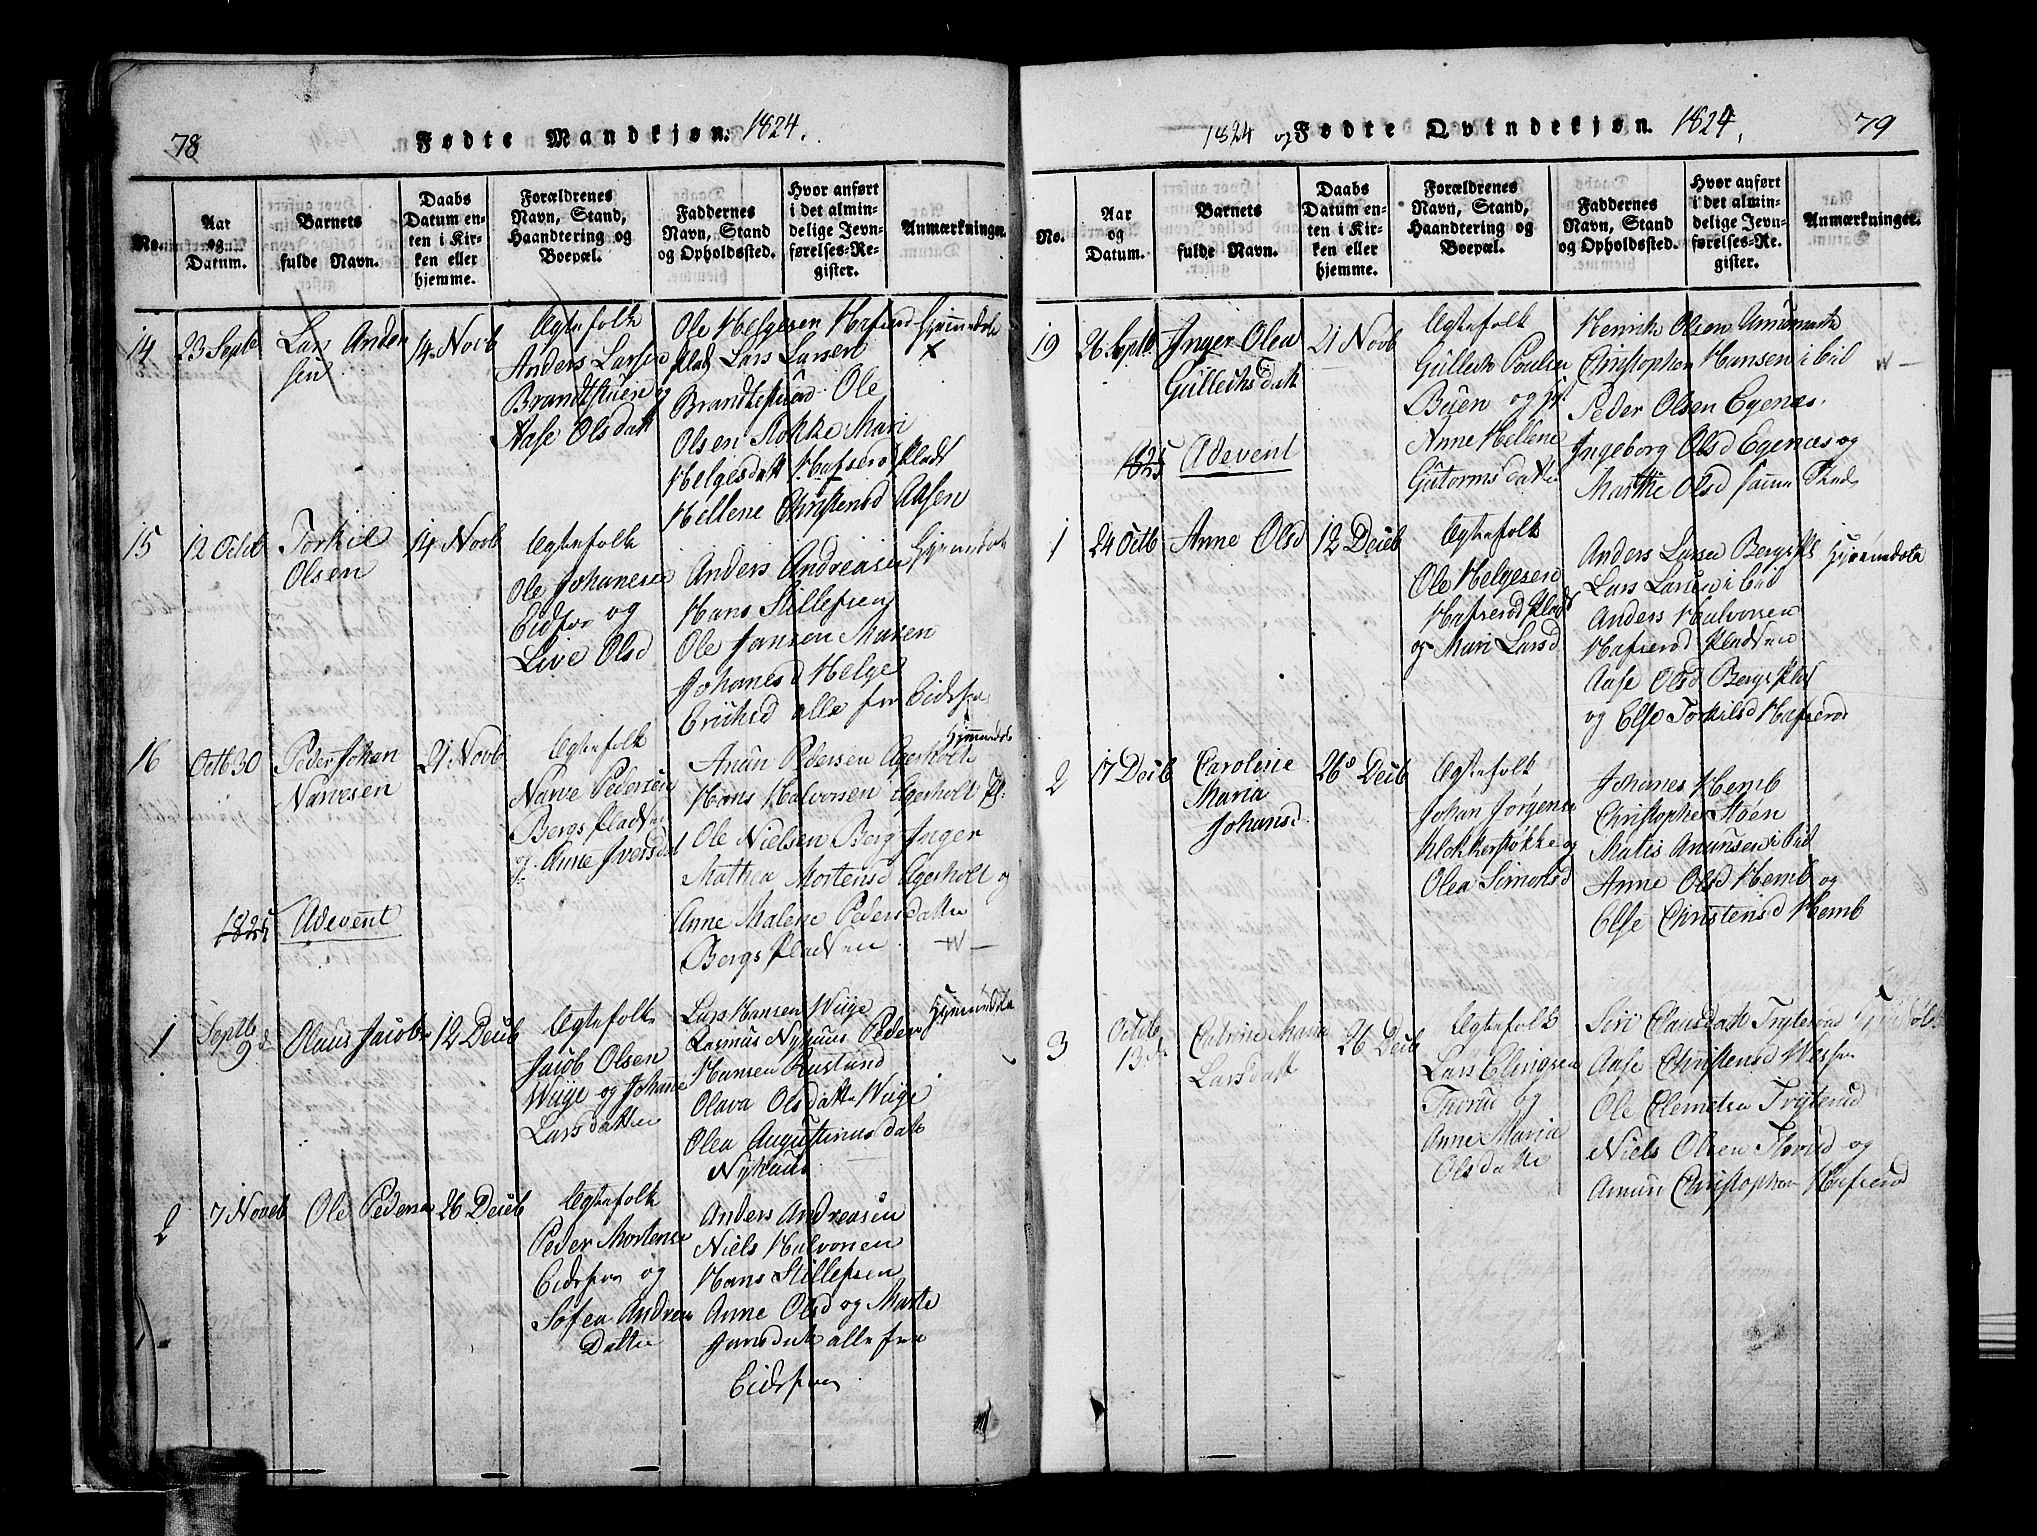 78
Fødte Mandkjøn. 1824.
No.
Aar og Datum.
Barnets fulde Navn.
Daabs Datum enten i Kirken eller hjemme.
Forældrenes Navn, Stand, Haandtering og Boepæl.
Faddernes Navn, Stand og Opholdssted.
Hvor anført i det almindelige Jevnførelses-Register.
Anmærkninger.
14
23 Septb
Lars Andersen
14 Novb
Ægtefolk
Anders Larsen
og
Aase Olsdatt
Ole Helgesen
Plads Lars Larsen
Ole
Olsen Stokke Mari
Helgesdatt
Hellene Christensd Aasen
15
12 Octb
Torkil
Olsen
14 Novb
Ægtefolk
Ole Johanesen
Eidsfos og
Live Olsd
Anders Andreasen
Hans Stillefsen
Ole Jansen Maren
Johanesd Helge
Erichsd alle fra Eidsfos
16
Octb 30
Peder Johan
Narvesen
21 Novb
Ægtefolk
Narve Pedersen
Bergs Pladsen
og Anne Iversdat
Amun Pedersen Agerholt
Hans Halvorsen Agerholt Pl.
Ole Nielsen Berg Inger
Mathea Mortensd Agerholt og
Anne Malene Pedersdatter
Bergs Pladsen
1825
Adevent
1
Septb
9d
Olaus Jacobs
12 Deceb
Ægtefolk
Jacob Olsen
Wiige og Johane
Larsdatter
Lars Hansen Wiige
Rasmus Nyhuus Peder
Hansen Rustand
Olava Olsdatter Wiige
Olea Augustinusdatt
Nyhuus
2
7 Noveb
Ole Pedersen
26 Deceb
Ægtefolk
Peder Mortensen
Eidsfos og
Sofea Andrea
Datter
Anders Andreasen
Niels Halvorsen
Hans Stillefsen
Anne Olsd og Marte
Jansdatt alle fra
Eidsfos
1824 og Fødte Qvindekjøn. 1824.
79
No.
Aar og Datum.
Barnets fulde Navn.
Daabs Datum enten i Kirken eller hjemme.
Forældrenes Navn, Stand, Haandtering og Boepæl.
Faddernes Navn, Stand og Opholdssted.
Hvor anført i det almindelige Jevnførelses-Register.
Anmærkninger.
19
26 Septb
Inger Olea
Gullechsdatt
21 Novb
Ægtefolk
Gullech Poulsen
Buen og
Anne Hellene
Gutormsdatter
Henrik Olsen
Christophen Hansen ibid
Peder Olsen Egenæs
Ingeborg Olsd Egenæs og
Marthe Olsd samme Sted
1825
Adevent
1
24 Octb
Anne Olsd
12 Deceb
Ægtefolk
Ole Helgesen
Hafserød Plads
og Mari Larsd
Anders Larsen Bergspl
Lars Larsen ibid
Anders Halvorsen
Hafserød Pladsen
Aase Olsd Bergs Plads
og Else Torkilsd Hafserød
2
17 Deceb
Caroline
Maria
Johansd
26 Deceb
Ægtefolk
Johan Jørgensen
Klokkerstøkke og
Olea Simonsd
Johanes Hemb
Christopher Støen
Matis Amunsen ibid
Anne Olsd Hemb og
Else Christensd Hemb
3
Octb
13d
Catrine Maria
Larsdatt
26 Deceb
Ægtefolk
Lars Elingsen
Thorud og
Anne Maria
Olsdatter
Siri Clausdatt Tryterud
Aase Christensd
Ole Clemetsen Tryterud
Niels Olsen Thorud og
Amun Christophersen Hafserød